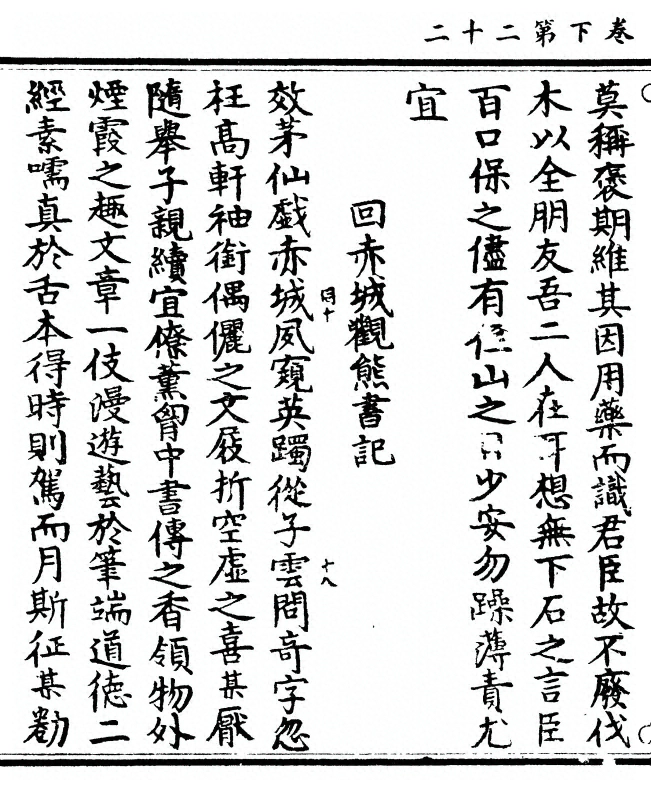 卷下第二十二
莫稱褒期維其因用藥而識君臣故不廢伐
木以全朋友吾二人在耳想無下石之言臣
百口保之儘有住山之日少安勿躁薄責尤
宜
回赤城觀熊書記
效茅仙戲赤城夙窺英躅從子雲問奇字忽
枉高軒袖銜偶儷之文屐折空虛之喜某厭
隨舉子親續宜僚薰胷中書傳之香領物外
煙霞之趣文章一伎漫遊藝於筆端道德二
經素嚅真於舌本得時則駕而月斯征某勸
四十
十八